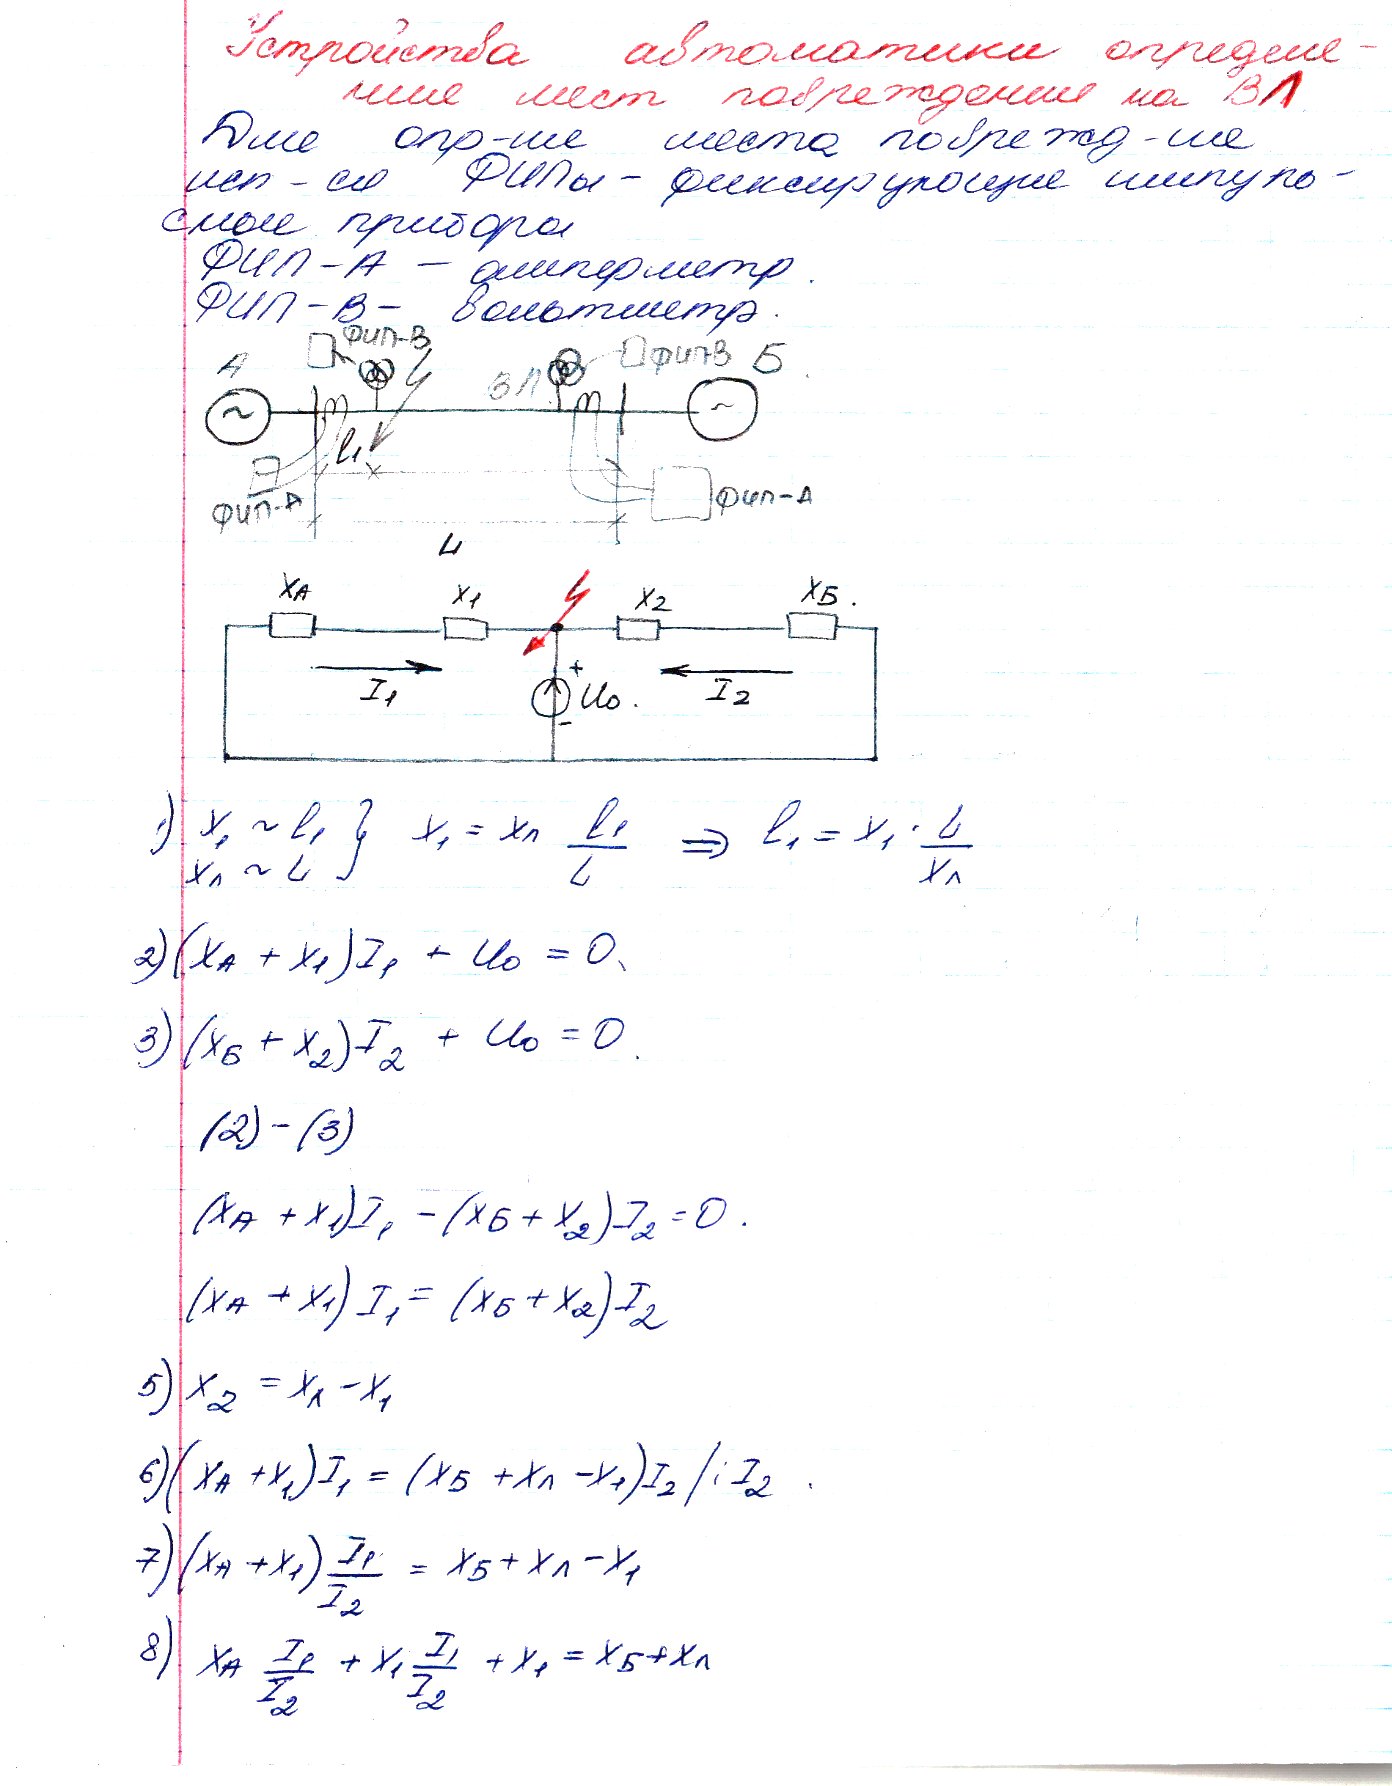 Устройства автоматики определе-
ние мест повреждение на ВЛ
Для опр-ие места поврежд-ие
исп-ся ФИПы - фиксирующие импуль-
сные приборы
ФИП-А - амперметр.
ФИП-В - вольтметр.
ФИП-В
ФИП-В
А
ВЛ
Б
l₁
ФИП-А
ФИП-А
L
XА X1 X2 XБ.
I1 + U0. I2
-
1) X1 ~ l1 } X1 = Xл l1/L ⇒ l1 = X1 · L/Xл
Xл ~ L
2) (XА + X1)I1 + U0 = 0
3) (XБ + X2)I2 + U0 = 0.
(2) - (3)
(XА + X1)I1 - (XБ + X2)I2 = 0.
(XА + X1)I1 = (XБ + X2)I2
5) X2 = Xл - X1
6) (XА + X1)I1 = (XБ + Xл - X1)I2 /: I2
7) (XА + X1) I1/I2 = XБ + Xл - X1
8) XА I1/I2 + X1 I1/I2 + X1 = XБ + Xл